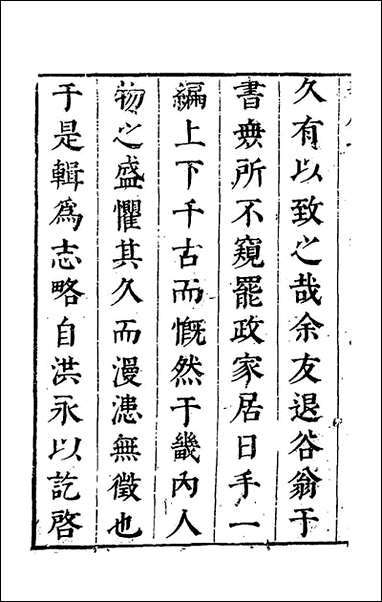 久有以致之哉余友退谷翁于
書無所不窺罷政家居日手一
編上下千古而慨然于畿內人
物之盛懼其久而漫漶無徵也
于是輯爲志略自洪永以訖啓